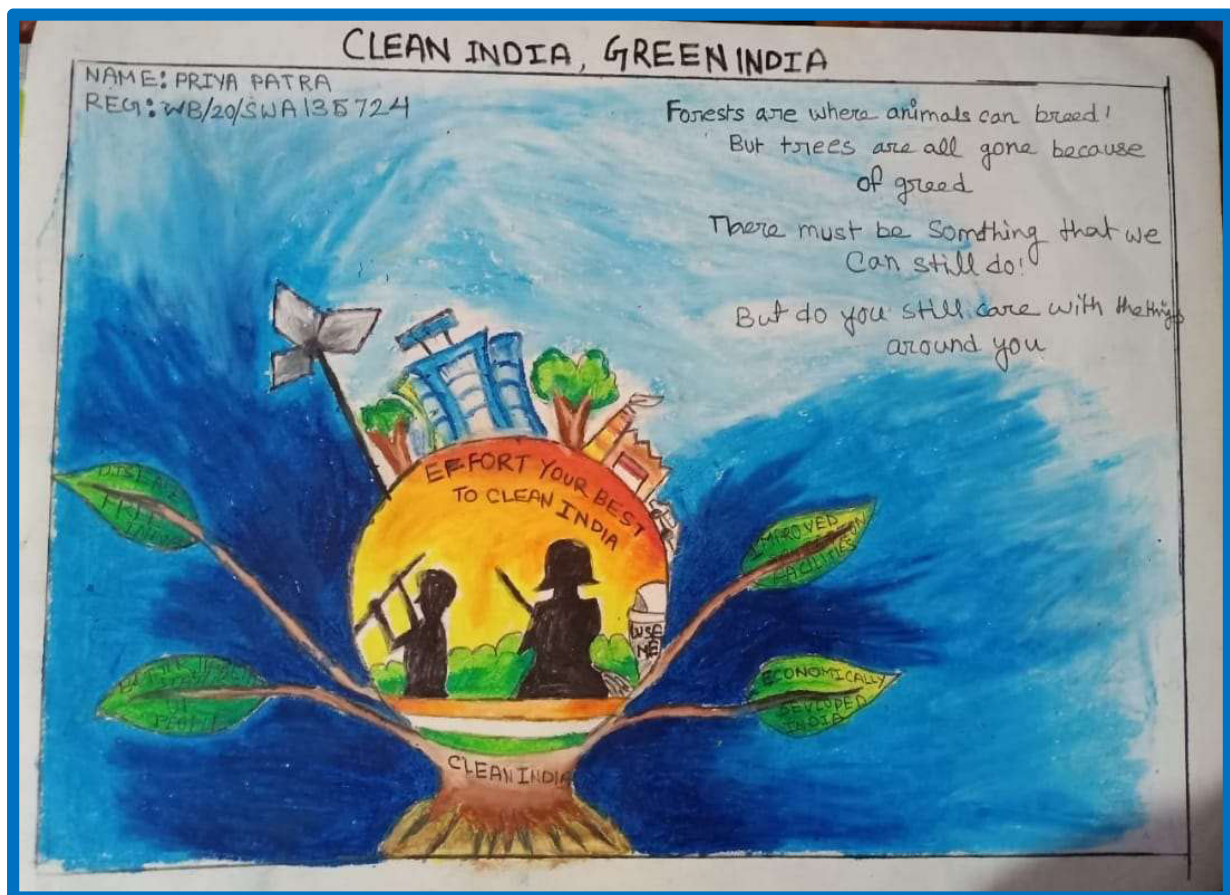 CLEAN INDIA, GREEN INDIA
NAME: PRIYA PATRA
REG: WB/20/SWA135724
Forests are where animals can breed!
But trees are all gone because
of greed
There must be Somthing that we
Can still do!
But do you still care with the things
around you
EFFORT YOUR BEST
TO CLEAN INDIA
DISEASE
FREE
IMPROVED
FACILITIES
USE
ME
OF
PEOPLE
ECONOMICALLY
DEVLOPED
INDIA
CLEAN INDIA